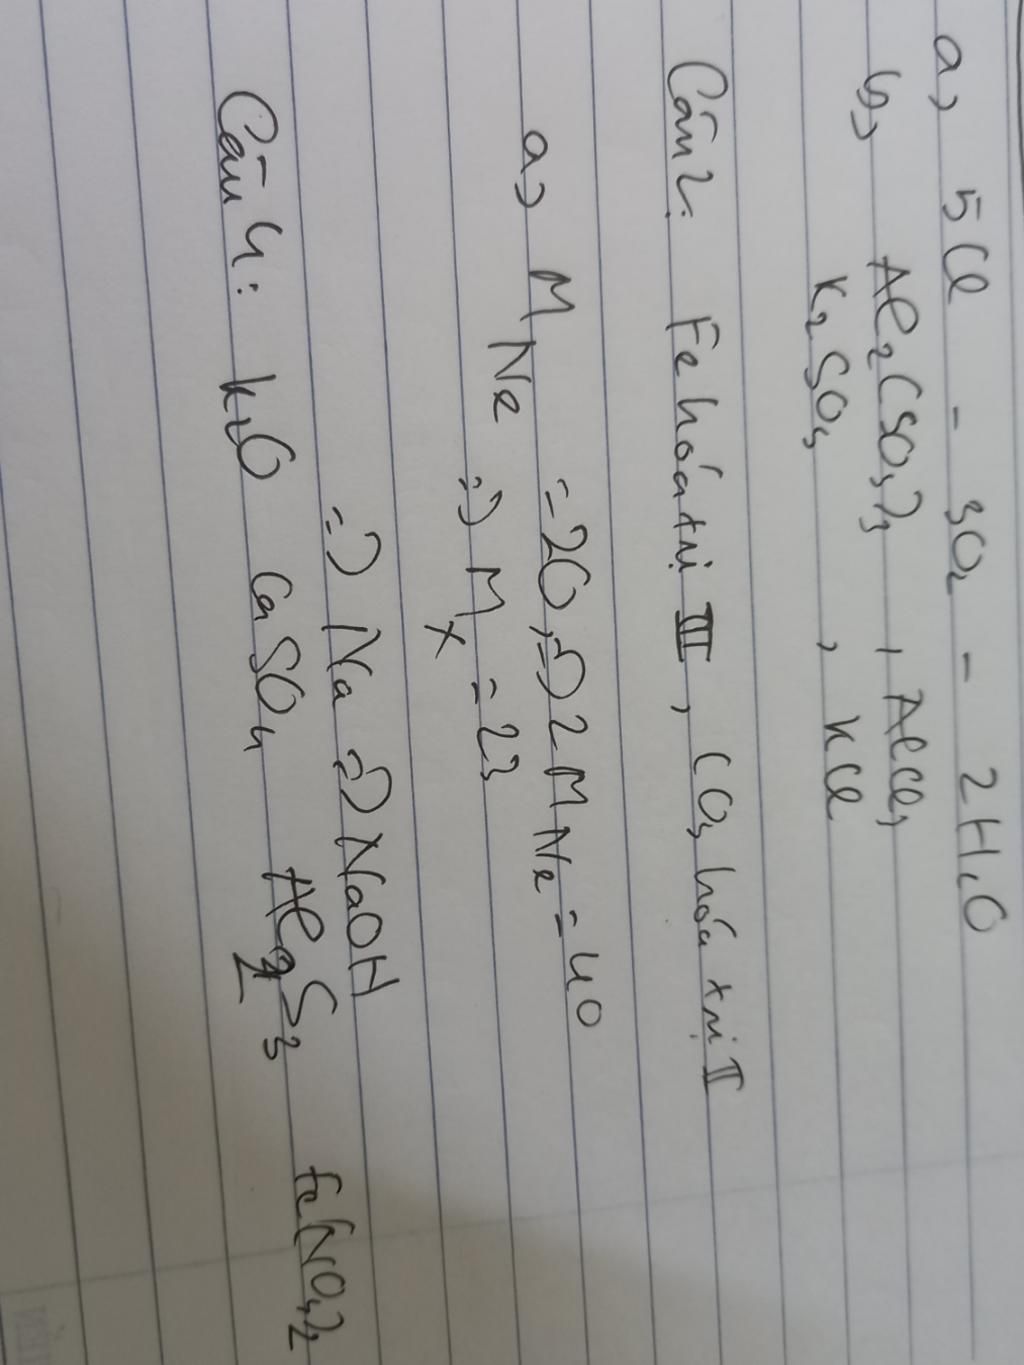 a, 5Cl - 3O₂ - 2H₂O
b, Al₂(SO₄)₃ , AlCl₃
K₂SO₄ , KCl
Câu 2: Fe hóa trị III, CO₃ hóa trị II
a, M Ne = 20, => 2 M Ne = 40
=> M x = 23
=> Na => NaOH
Câu 4: K₂O CaSO₄ Al₂S₃ Fe(NO₃)₃